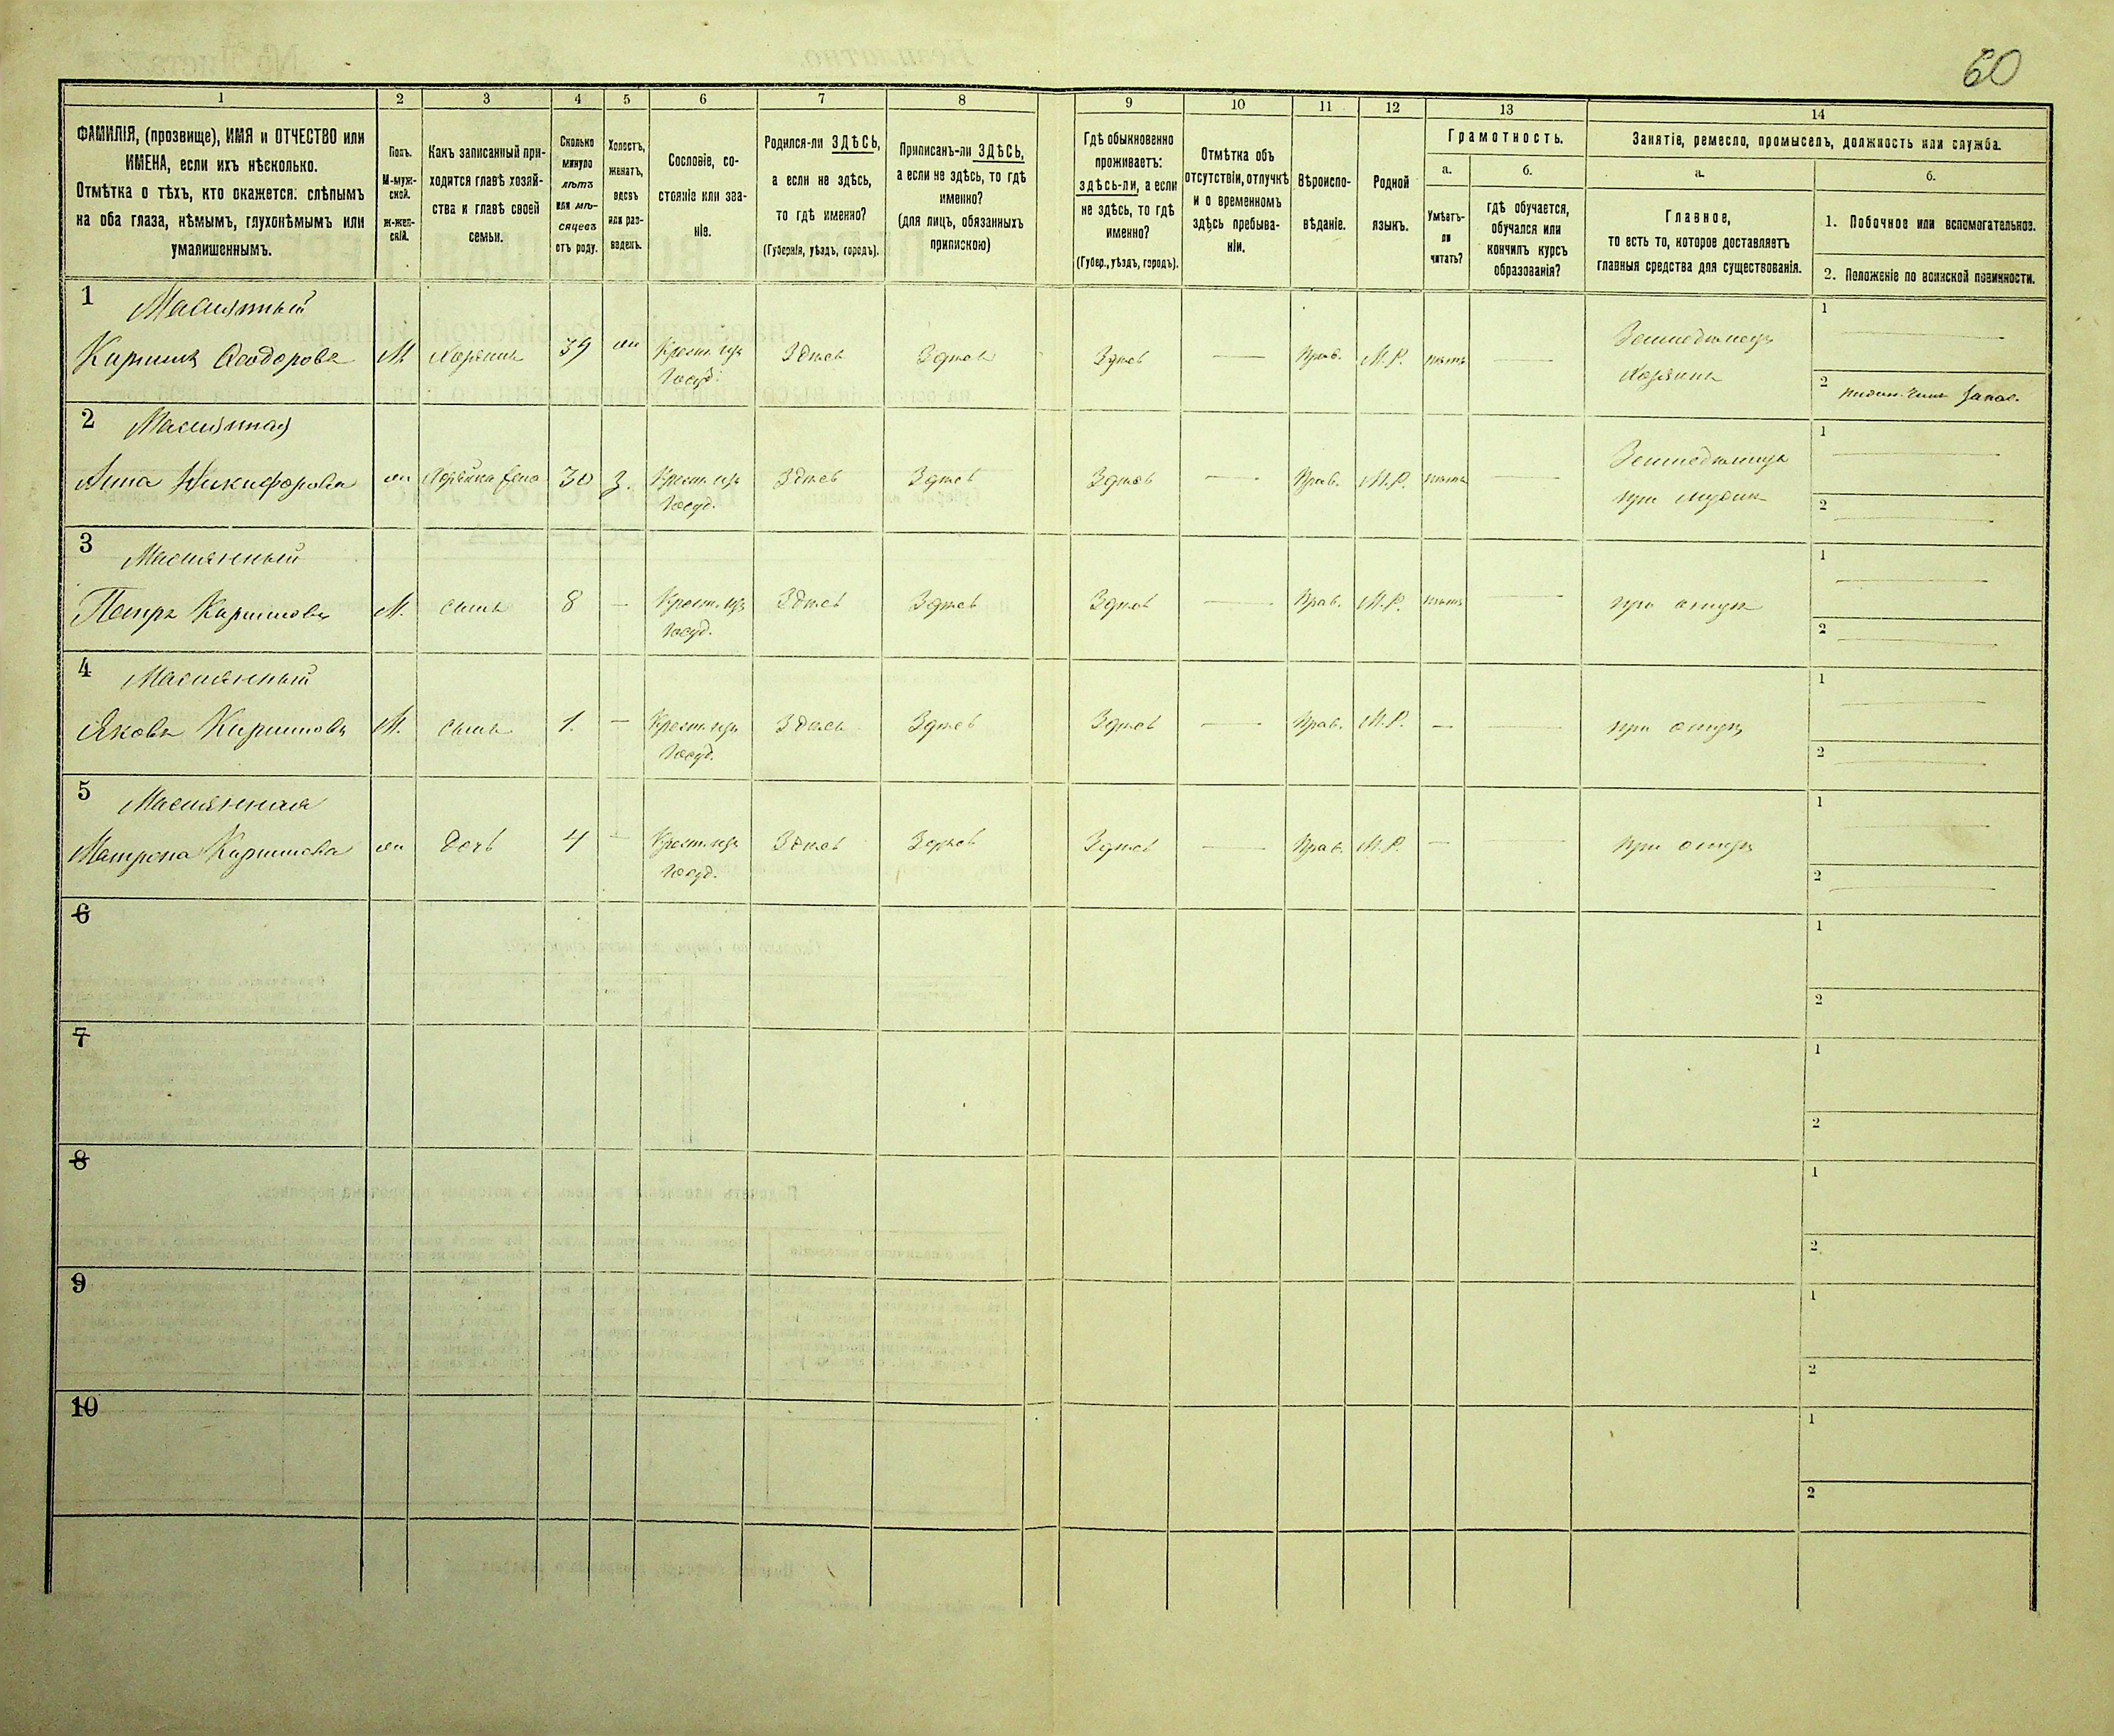 60
1 2 3 4 5 6 7 8 9 10 11 12 13 14
ФАМИЛІЯ, (прозвище), ИМЯ и ОТЧЕСТВО или
ИМЕНА, если ихъ нѣсколько.
Отмѣтка о тѣхъ, кто окажется: слѣпымъ
на оба глаза, нѣмымъ, глухонѣмымъ или
умалишеннымъ.
Полъ.
М-муж-
ской.
ж-жен-
скій.
Какъ записанный при-
ходится главѣ хозяй-
ства и главѣ своей
семьи.
Сколько
минуло
лѣтъ
или мѣ-
сяцевъ
отъ роду.
Холостъ,
женатъ,
вдовъ
или раз-
веденъ.
Сословіе, со-
стояніе или зва-
ніе.
Родился-ли ЗДѢСЬ,
а если не здѣсь,
то гдѣ именно?
(Губернія, уѣздъ, городъ).
Приписанъ-ли ЗДѢСЬ,
а если не здѣсь, то гдѣ
именно?
(для лицъ, обязанныхъ
припискою)
Гдѣ обыкновенно
проживаетъ:
здѣсь-ли, а если
не здѣсь, то гдѣ
именно?
(Губер., уѣздъ, городъ).
Отмѣтка объ
отсутствіи, отлучкѣ
и о временномъ
здѣсь пребыва-
ніи.
Вѣроиспо-
вѣданіе.
Родной
языкъ.
Грамотность.
а.
Умѣетъ-
ли
читать?
б.
гдѣ обучается,
обучался или
кончилъ курсъ
образованія?
Занятіе, ремесло, промыселъ, должность или служба.
а.
Главное,
то есть то, которое доставляетъ
главныя средства для существованія.
б.
1. Побочное или вспомогательное.
2. Положеніе по воинской повинности.
1
Кирилъ Ѳеодоровъ М Хозяинъ 39 Крест. изъ Здѣсь Здѣсь Здѣсь — Прав. М.Р. нѣтъ —
Госуд.
Хозяинъ
1 —
2
2
Анна Никифорова Хозяина жена 30 З. Крест. изъ Здѣсь Здѣсь Здѣсь — Прав. М.Р. нѣтъ —
Госуд.
при мужѣ
1 —
2 —
3
Петръ Кириловъ М. сынъ 8 — Крест. изъ Здѣсь Здѣсь Здѣсь — Прав. М.Р. нѣтъ — при отцѣ
Госуд.
1 —
2 —
4
Яковъ Кириловъ М. сынъ 1. — Крест. изъ Здѣсь Здѣсь Здѣсь — Прав. М.Р. — — при отцѣ
Госуд.
1 —
2 —
5
Матрона Кирилова дочь 4 — Крест. изъ Здѣсь Здѣсь Здѣсь — Прав. М.Р. — — при отцѣ
Госуд.
1 —
2 —
6
1
2
7
1
2
8
1
2
9
1
2
10
1
2